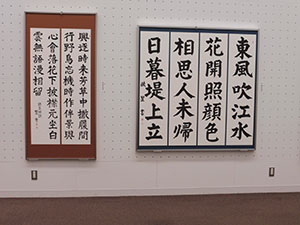 興逐時來芳草中撤履間
行野鳥忘機時作伴景與
心會落花下披襟兀坐白
雲無語漫相留
東風吹江水
花開照顔色
相思人未帰
日暮堤上立